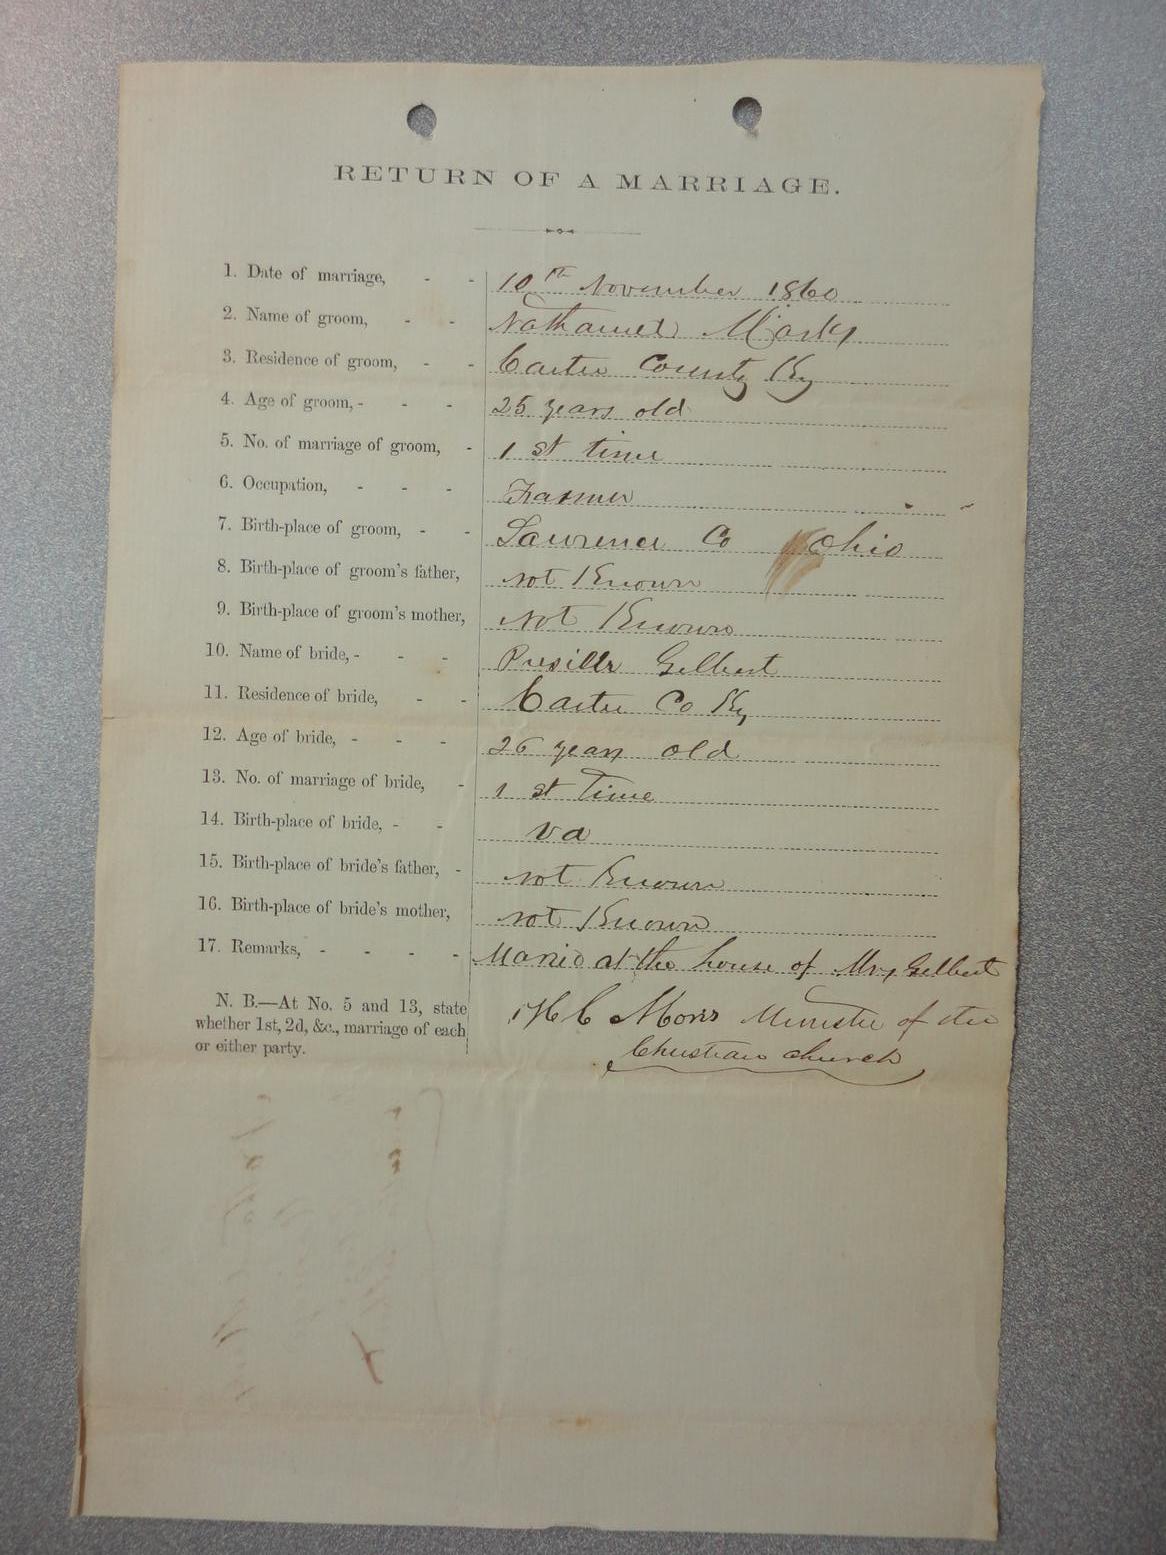 RETURN OF A MARRIAGE.
1. Date of marriage, - - 10th November 1860
2. Name of groom, - - Nathaniel Marks
3. Residence of groom, - - Carter County Ky
4. Age of groom, - - - 25 years old
5. No. of marriage of groom, - 1 st time
6. Occupation, - - - Farmer
7. Birth-place of groom, - - Lawrence Co Ohio
8. Birth-place of groom's father, not Known
9. Birth-place of groom's mother, Not Known
10. Name of bride, - - - Presilla Gilbert
11. Residence of bride, - - Carter Co Ky
12. Age of bride, - - - 26 years old
13. No. of marriage of bride, - 1 st Time
14. Birth-place of bride, - - va
15. Birth-place of bride's father, - not Known
16. Birth-place of bride's mother, not Known
17. Remarks, - - - - Maried at the house of Mrs Gilbert
N. B.—At No. 5 and 13, state
whether 1st, 2d, &c., marriage of each
or either party.
H C Morris Minister of the
Christian church